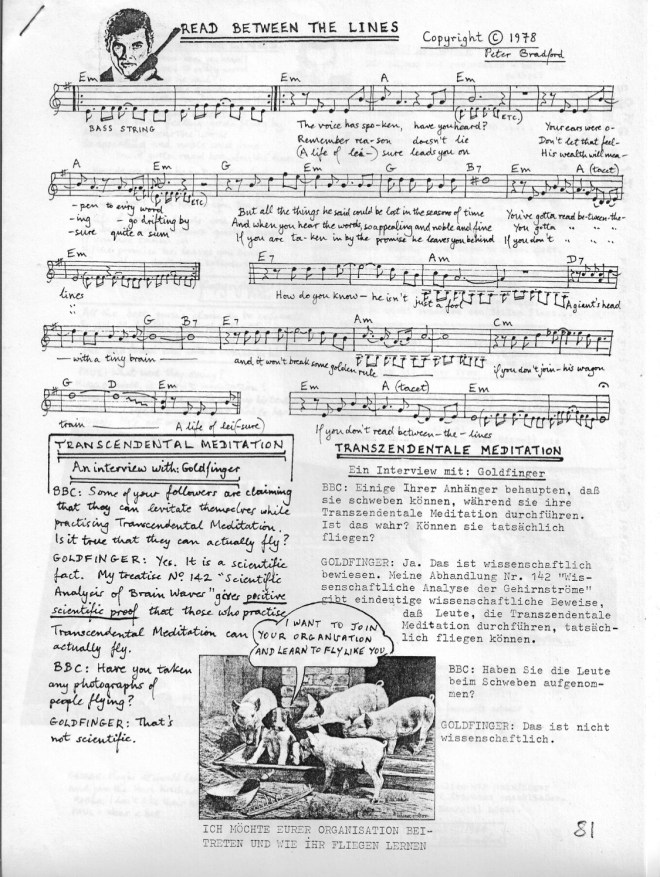 READ BETWEEN THE LINES
Copyright © 1978
Peter Bradford
Em Em A Em
BASS STRING
ETC.
The voice has spo-ken, have you heard? Your ears were o-
Remember rea-son doesn't lie Don't let that feel-
(A life of lei-) sure leads you on His wealth will mea-
A Em G Em G B7 Em A (tacet)
ETC
-pen to every word But all the things he said could be lost in the season of time You've gotta read be-tween-the-
-ing - go drifting by And when you hear the words, so appealing and noble and fine You gotta " " "
-sure quite a sum If you are ta-ken in by the promise he leaves you behind If you don't " " "
Em E7 Am D7
lines How do you know - he isn't just a fool A giant's head
G B7 E7 Am Cm
- with a tiny brain and it won't break some golden rule if you don't join - his wagon
G D Em Em A (tacet) Em
train A life of lei(-sure)
If you don't read between-the-lines
TRANSCENDENTAL MEDITATION
An interview with: Goldfinger
BBC: Some of your followers are claiming
that they can levitate themselves while
practising Transcendental Meditation.
Is it true that they can actually fly?
GOLDFINGER: Yes. It is a scientific
fact. My treatise No 142 "Scientific
Analysis of Brain Waves" gives positive
scientific proof that those who practise
Transcendental Meditation can
actually fly.
BBC: Have you taken
any photographs of
people flying?
GOLDFINGER: That's
not scientific.
TRANSZENDENTALE MEDITATION
Ein Interview mit: Goldfinger
BBC: Einige Ihrer Anhänger behaupten, daß
sie schweben können, während sie ihre
Transzendentale Meditation durchführen.
Ist das wahr? Können sie tatsächlich
fliegen?
GOLDFINGER: Ja. Das ist wissenschaftlich
bewiesen. Meine Abhandlung Nr. 142 "Wis-
senschaftliche Analyse der Gehirnströme"
gibt eindeutige wissenschaftliche Beweise,
daß Leute, die Transzendentale
Meditation durchführen, tatsäch-
lich fliegen können.
BBC: Haben Sie die Leute
beim Schweben aufgenom-
men?
GOLDFINGER: Das ist nicht
wissenschaftlich.
I WANT TO JOIN
YOUR ORGANISATION
AND LEARN TO FLY LIKE YOU
ICH MÖCHTE EURER ORGANISATION BEI-
TRETEN UND WIE IHR FLIEGEN LERNEN
81